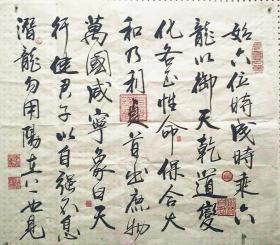 始六位時成時乘六
龍以御天乾道變
化各正性命保合大
和乃利貞首出庶物
萬國咸寧象曰天
行健君子以自强不息
潛龍勿用陽在下也見